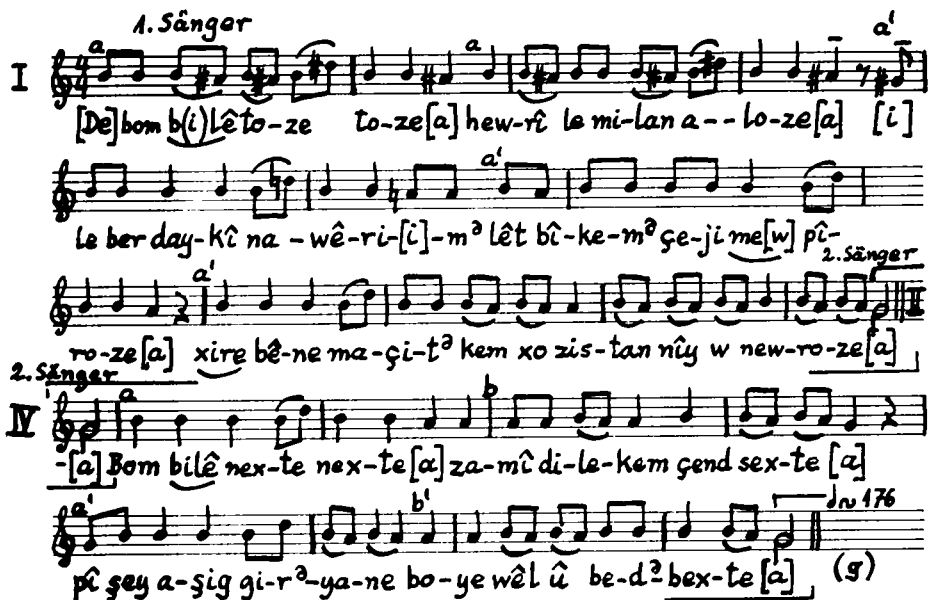 1. Sänger
a a a'
I 4/4
[De] bom b(i)lê to-ze to-ze[a] hew-rî le mi-lan a--lo-ze[a] [i]
a'
le ber day-kî na-wê-ri-[i]-mᵊ lêt bî-ke-mᵊ çe-ji me[w] pî-
a' 2. Sänger
II
ro-ze[a] xire bê-ne ma-çi-tᵊ kem xo zis-tan nîy w new-ro-ze[a]
2. Sänger
a b
IV
-[a] Bom bilê nex-te nex-te[a] za-mî di-le-kem çend sex-te [a]
a' b' ♩~ 176
pî şey a-şig gi-rᵊ-ya-ne bo-ye wêl û be-dᵊ bex-te[a] (g)